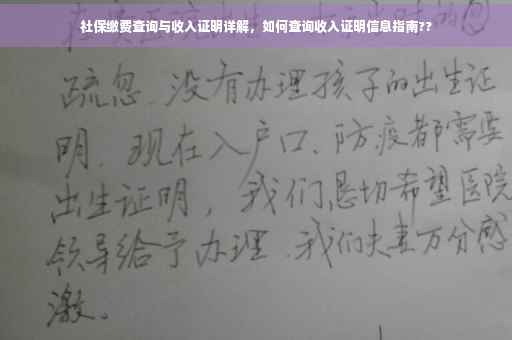 社保缴费查询与收入证明详解，如何查询收入证明信息指南??
疏忽、没有办理孩子的出生证
明、现在入户口、防疫都需要
出生证明，我们恳切希望医院
领导给予办理、我们夫妻万分感
激。